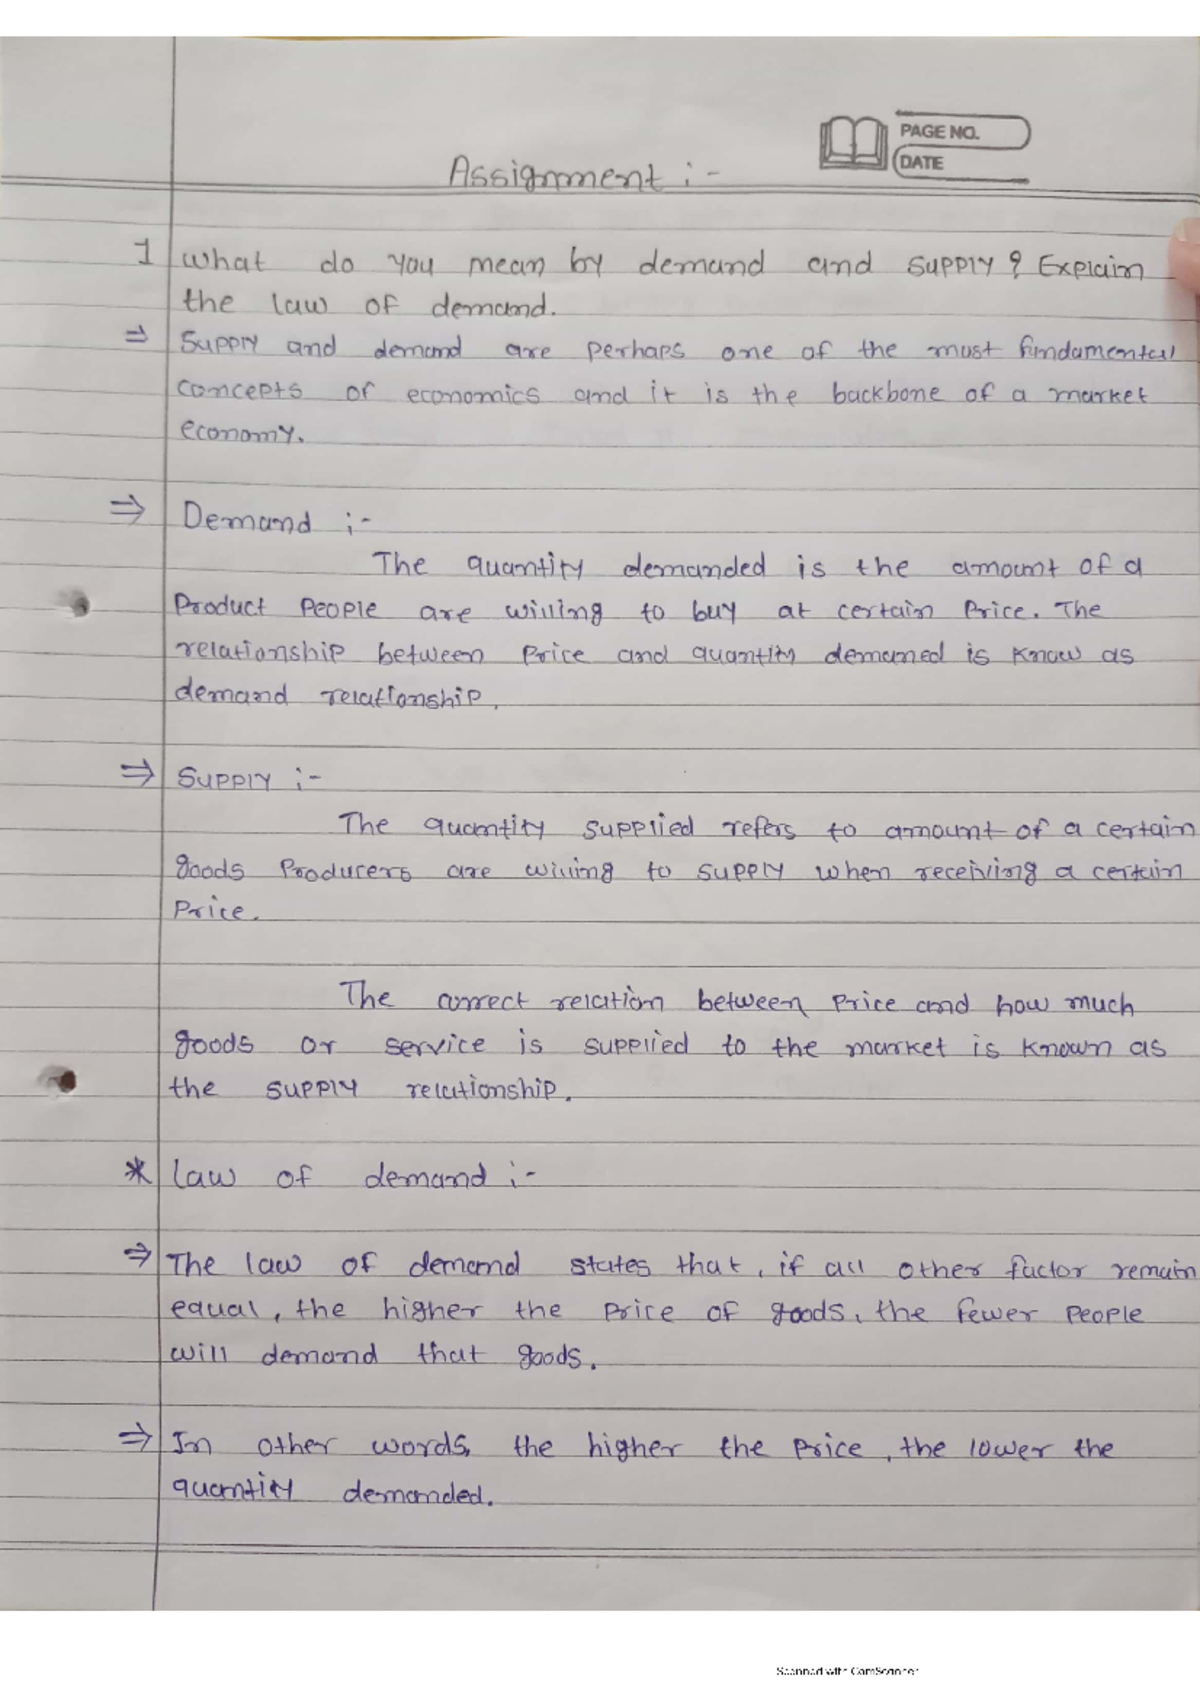 PAGE NO.
DATE
Assignment :-
1 What do you mean by demand and supply? Explain
the law of demand.
⇒ Supply and demand are perhaps one of the most fundamental
concepts of economics and it is the backbone of a market
economy.
⇒ Demand :-
The quantity demanded is the amount of a
Product People are willing to buy at certain Price. The
relationship between Price and quantity demaned is know as
demand relationship.
⇒ Supply :-
The quantity supplied refers to amount of a certain
goods Producers are willing to supply when receiving a certain
Price.
The correct relation between Price and how much
goods or service is supplied to the market is known as
the supply relationship.
* law of demand :-
⇒ The law of demand states that, if all other factor remain
equal, the higher the Price of goods, the fewer People
will demand that goods.
⇒ In other words, the higher the Price, the lower the
quantity demanded.
Scanned with CamScanner